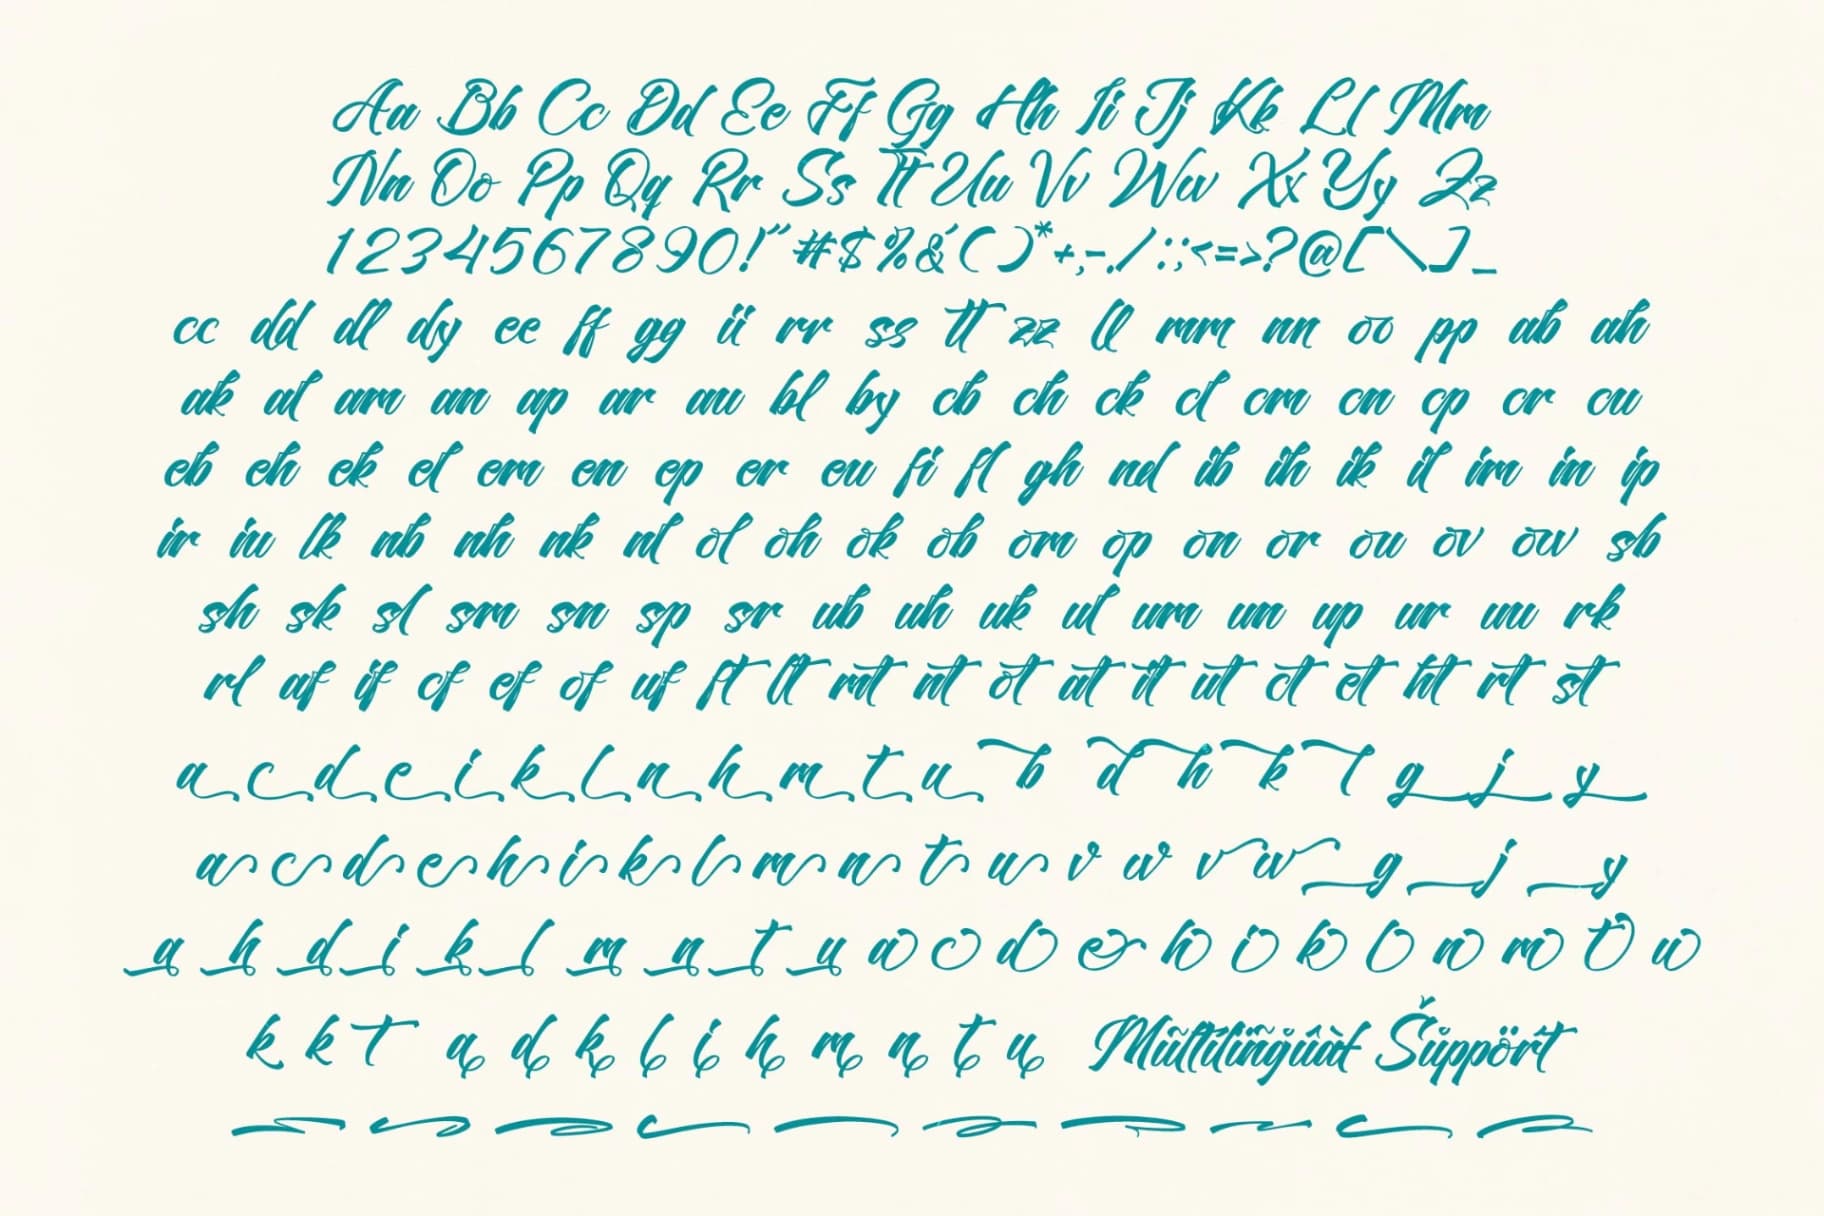 Aa Bb Cc Dd Ee Ff Gg Hh Ii Jj Kk Ll Mm
Nn Oo Pp Qq Rr Ss Tt Uu Vv Ww Xx Yy Zz
1234567890!"#$%&'()*+,-./:;<=>?@[\]_
cc dd dl dy ee ff gg ii rr ss tt zz ll mm nn oo pp ab ah
ak al am an ap ar au bl by cb ch ck cl cm cn cp cr cu
eb eh ek el em en ep er eu fi fl gh nd ib ih ik il im in ip
ir iu lk nb nh nk nl ol oh ok ob om op on or ou ov ow sb
sh sk sl sm sn sp sr ub uh uk ul um un up ur uu rk
rl af if cf ef of uf ft lt mt nt ot at it ut ct et ht rt st
a c d e i k l n h m t u b d h k l g j y
a c d e h i k l m n t u v w v w g j y
a h d i k l m n t u a c d e h i k l n m t u
k k t a d k l i h m n t u Mũltĩlïñgůâł Šůppört